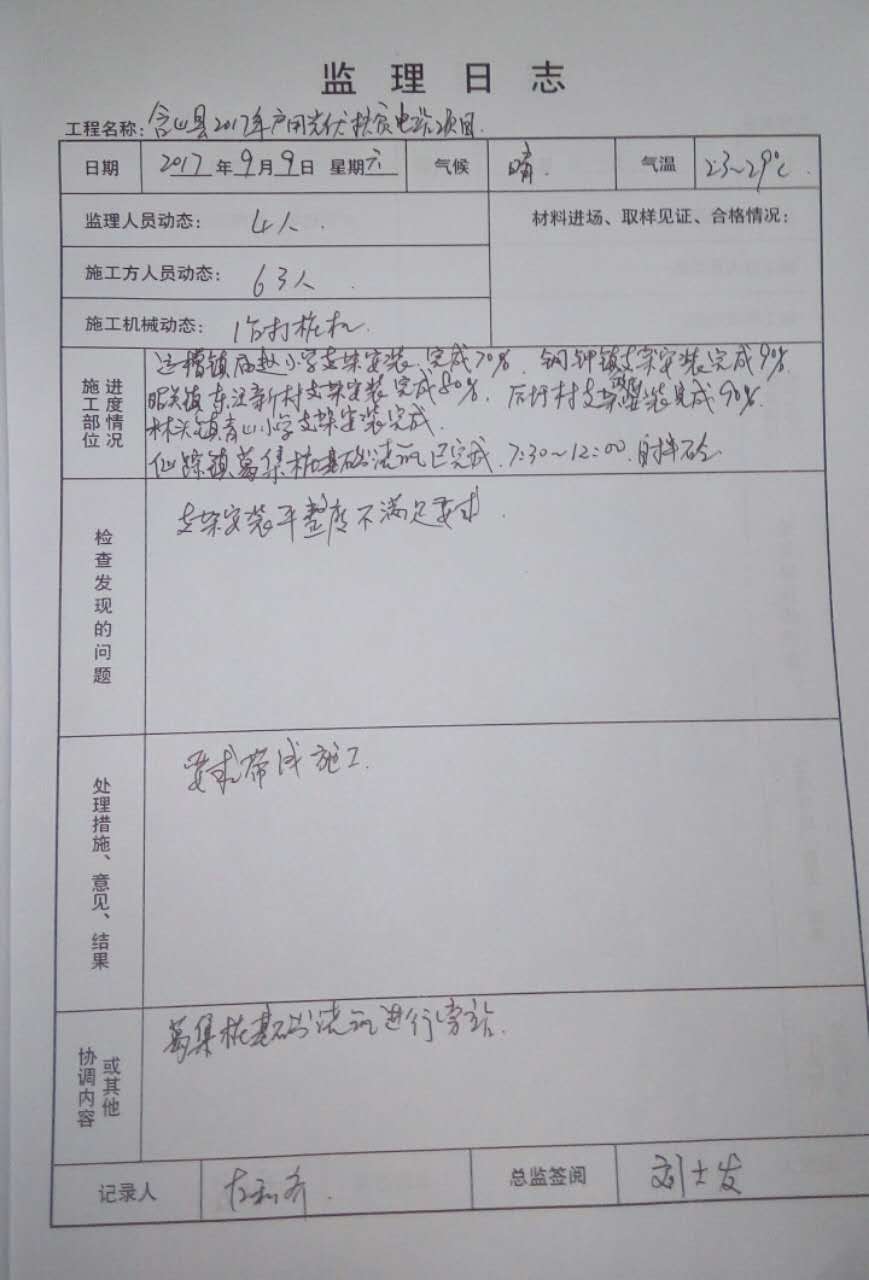 监理日志
工程名称:含山县2017年户用光伏扶贫电站项目.
日期 2017年9月9日 星期六 气候 晴. 气温 23~29℃.
监理人员动态: 4人.
材料进场、取样见证、合格情况:
施工方人员动态: 63人.
施工机械动态: 1台打桩机.
施工部位 进度情况
运漕镇 赵小学支架安装 完成70%, 铜钟镇支架安装完成9%
昭关镇东江新村支架安装完成80%, 后村村支架安装完成90%.
林头镇青山小学支架安装完成.
仙踪镇葛集桩基础浇筑已完成, 7:30~12:00
检查发现的问题
支架安装平整度不满足要求.
处理措施、意见、结果
要求带线施工.
协调内容 或其他
葛集桩基础浇筑进行旁站.
记录人 总监签阅 刘士发